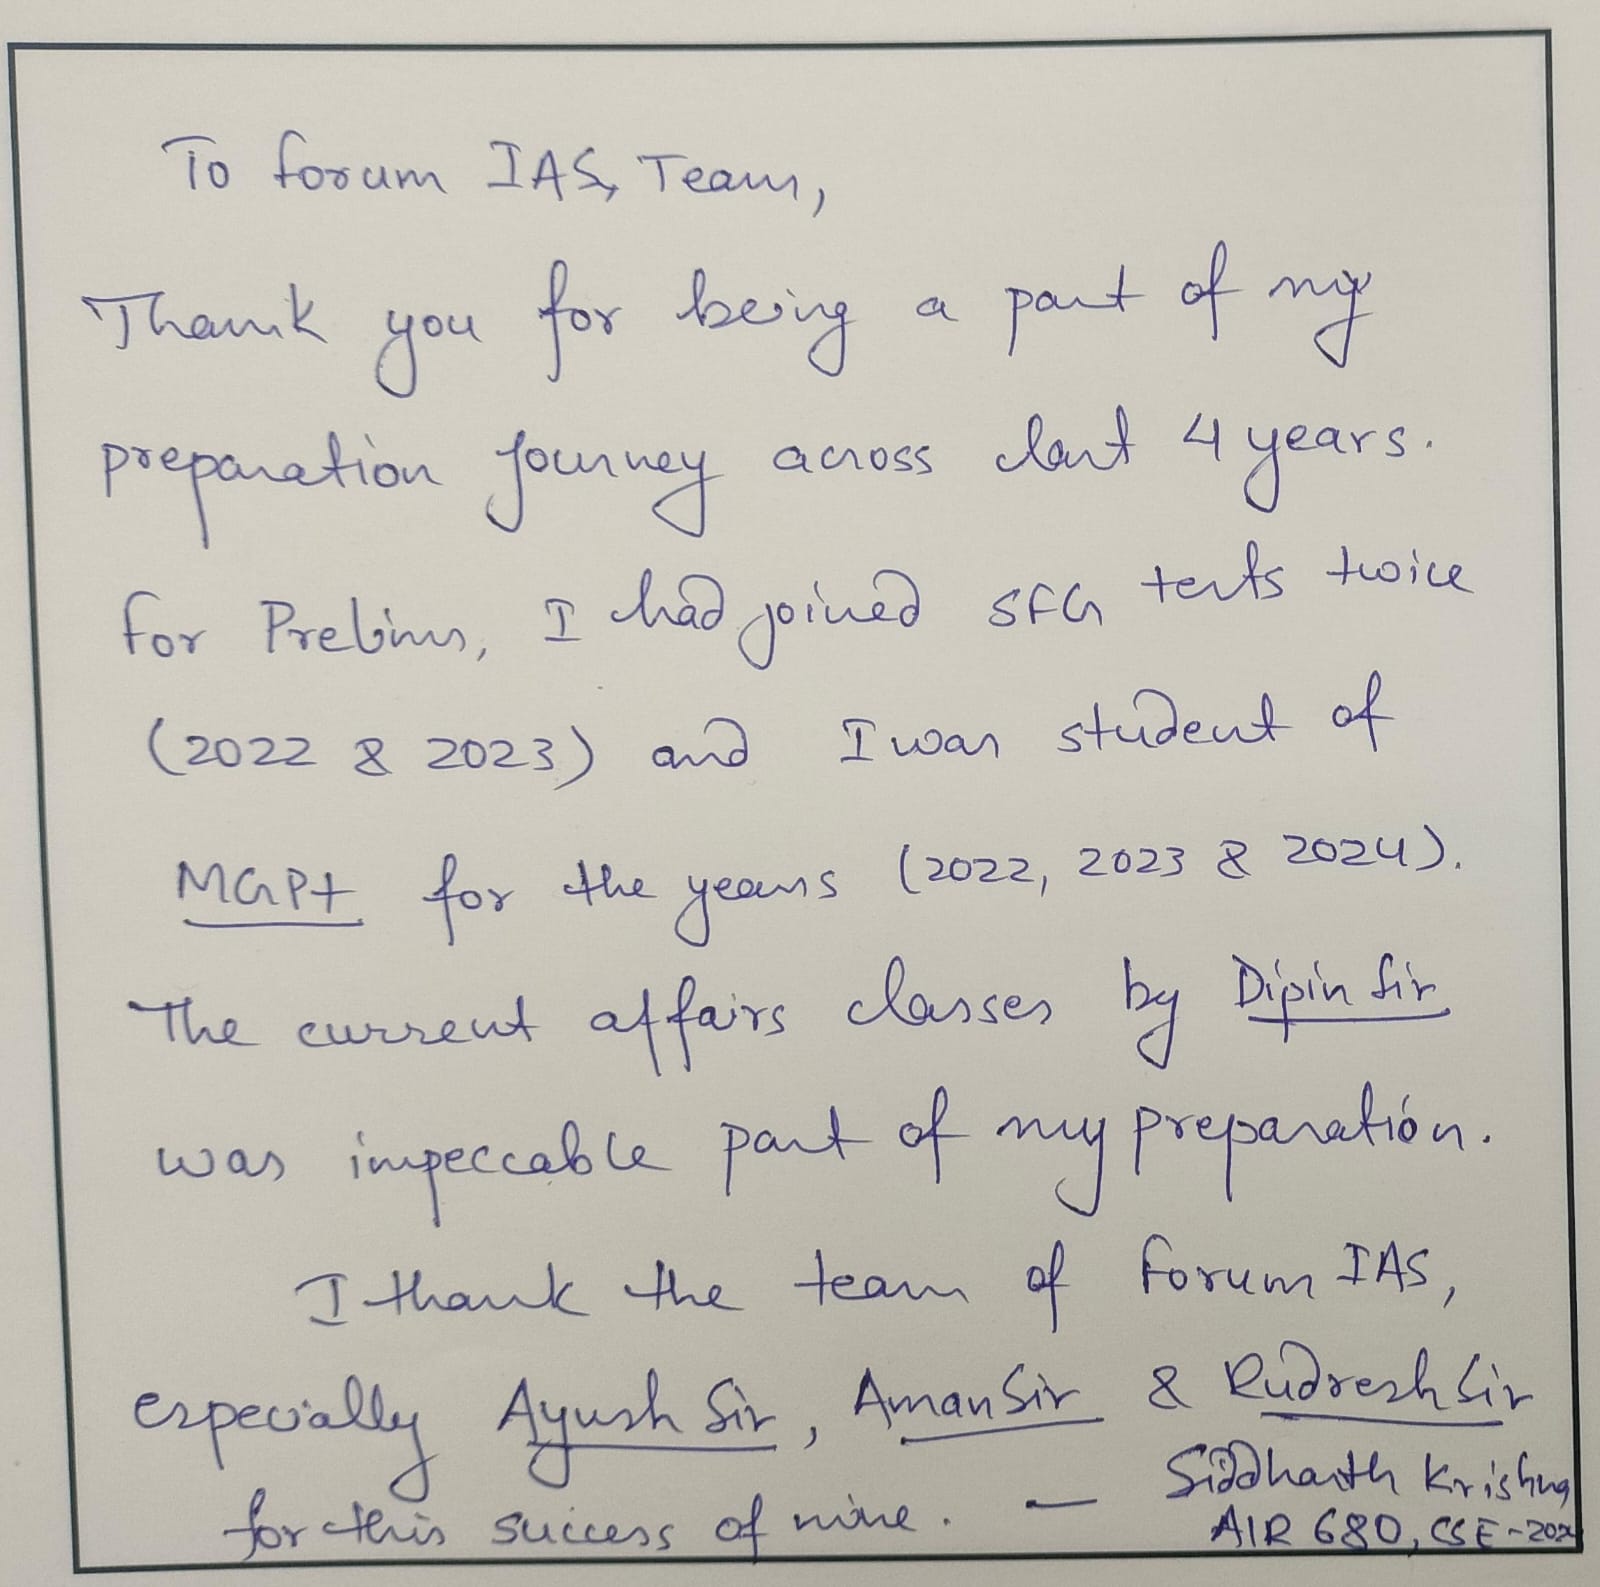 To Forum IAS, Team,
Thank you for being a part of my
preparation journey across last 4 years.
For Prelims, I had joined SFG tests twice
(2022 & 2023) and I was student of
MGP+ for the years (2022, 2023 & 2024).
The current affairs classes by Dipin Sir
was impeccable part of my preparation.
I thank the team of Forum IAS,
especially Ayush Sir, Aman Sir & Rudresh Sir
for this success of mine. — Siddharth Krishna
AIR 680, CSE-202